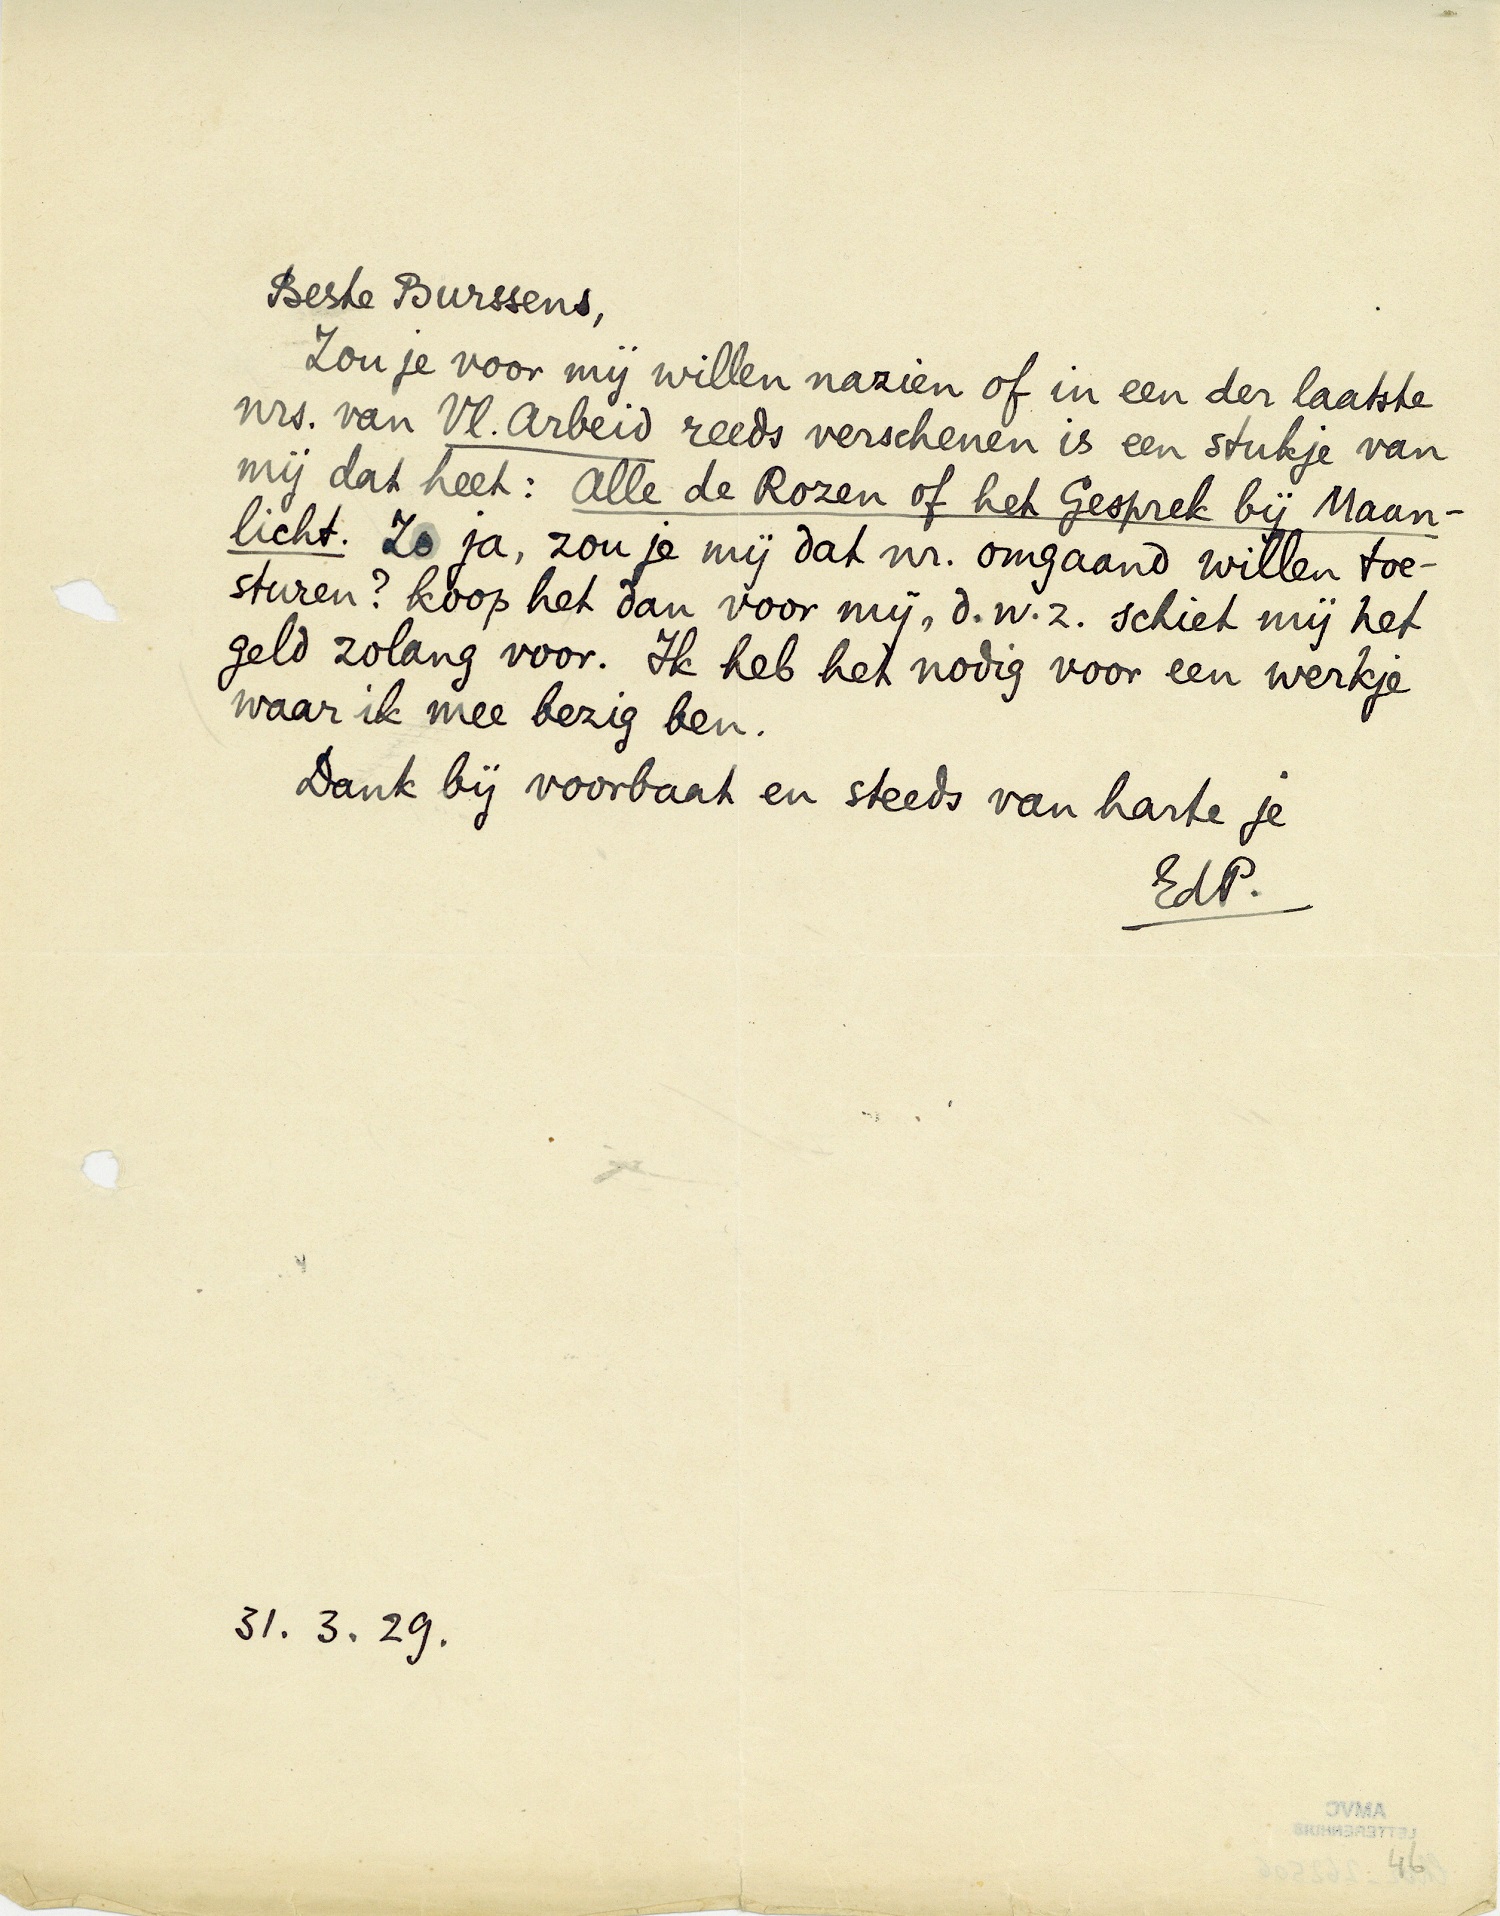 Beste Burssens,
Zou je voor mij willen nazien of in een der laatste
nrs. van Vl. Arbeid reeds verschenen is een stukje van
mij dat heet: Alle de Rozen of het Gesprek bij Maan-
licht. Zo ja, zou je mij dat nr. omgaand willen toe-
sturen? koop het dan voor mij, d.w.z. schiet mij het
geld zolang voor. Ik heb het nodig voor een werkje
waar ik mee bezig ben.
Dank bij voorbaat en steeds van harte je
EdP.
31. 3. 29.
AMVC
LETTERENHUIS
46